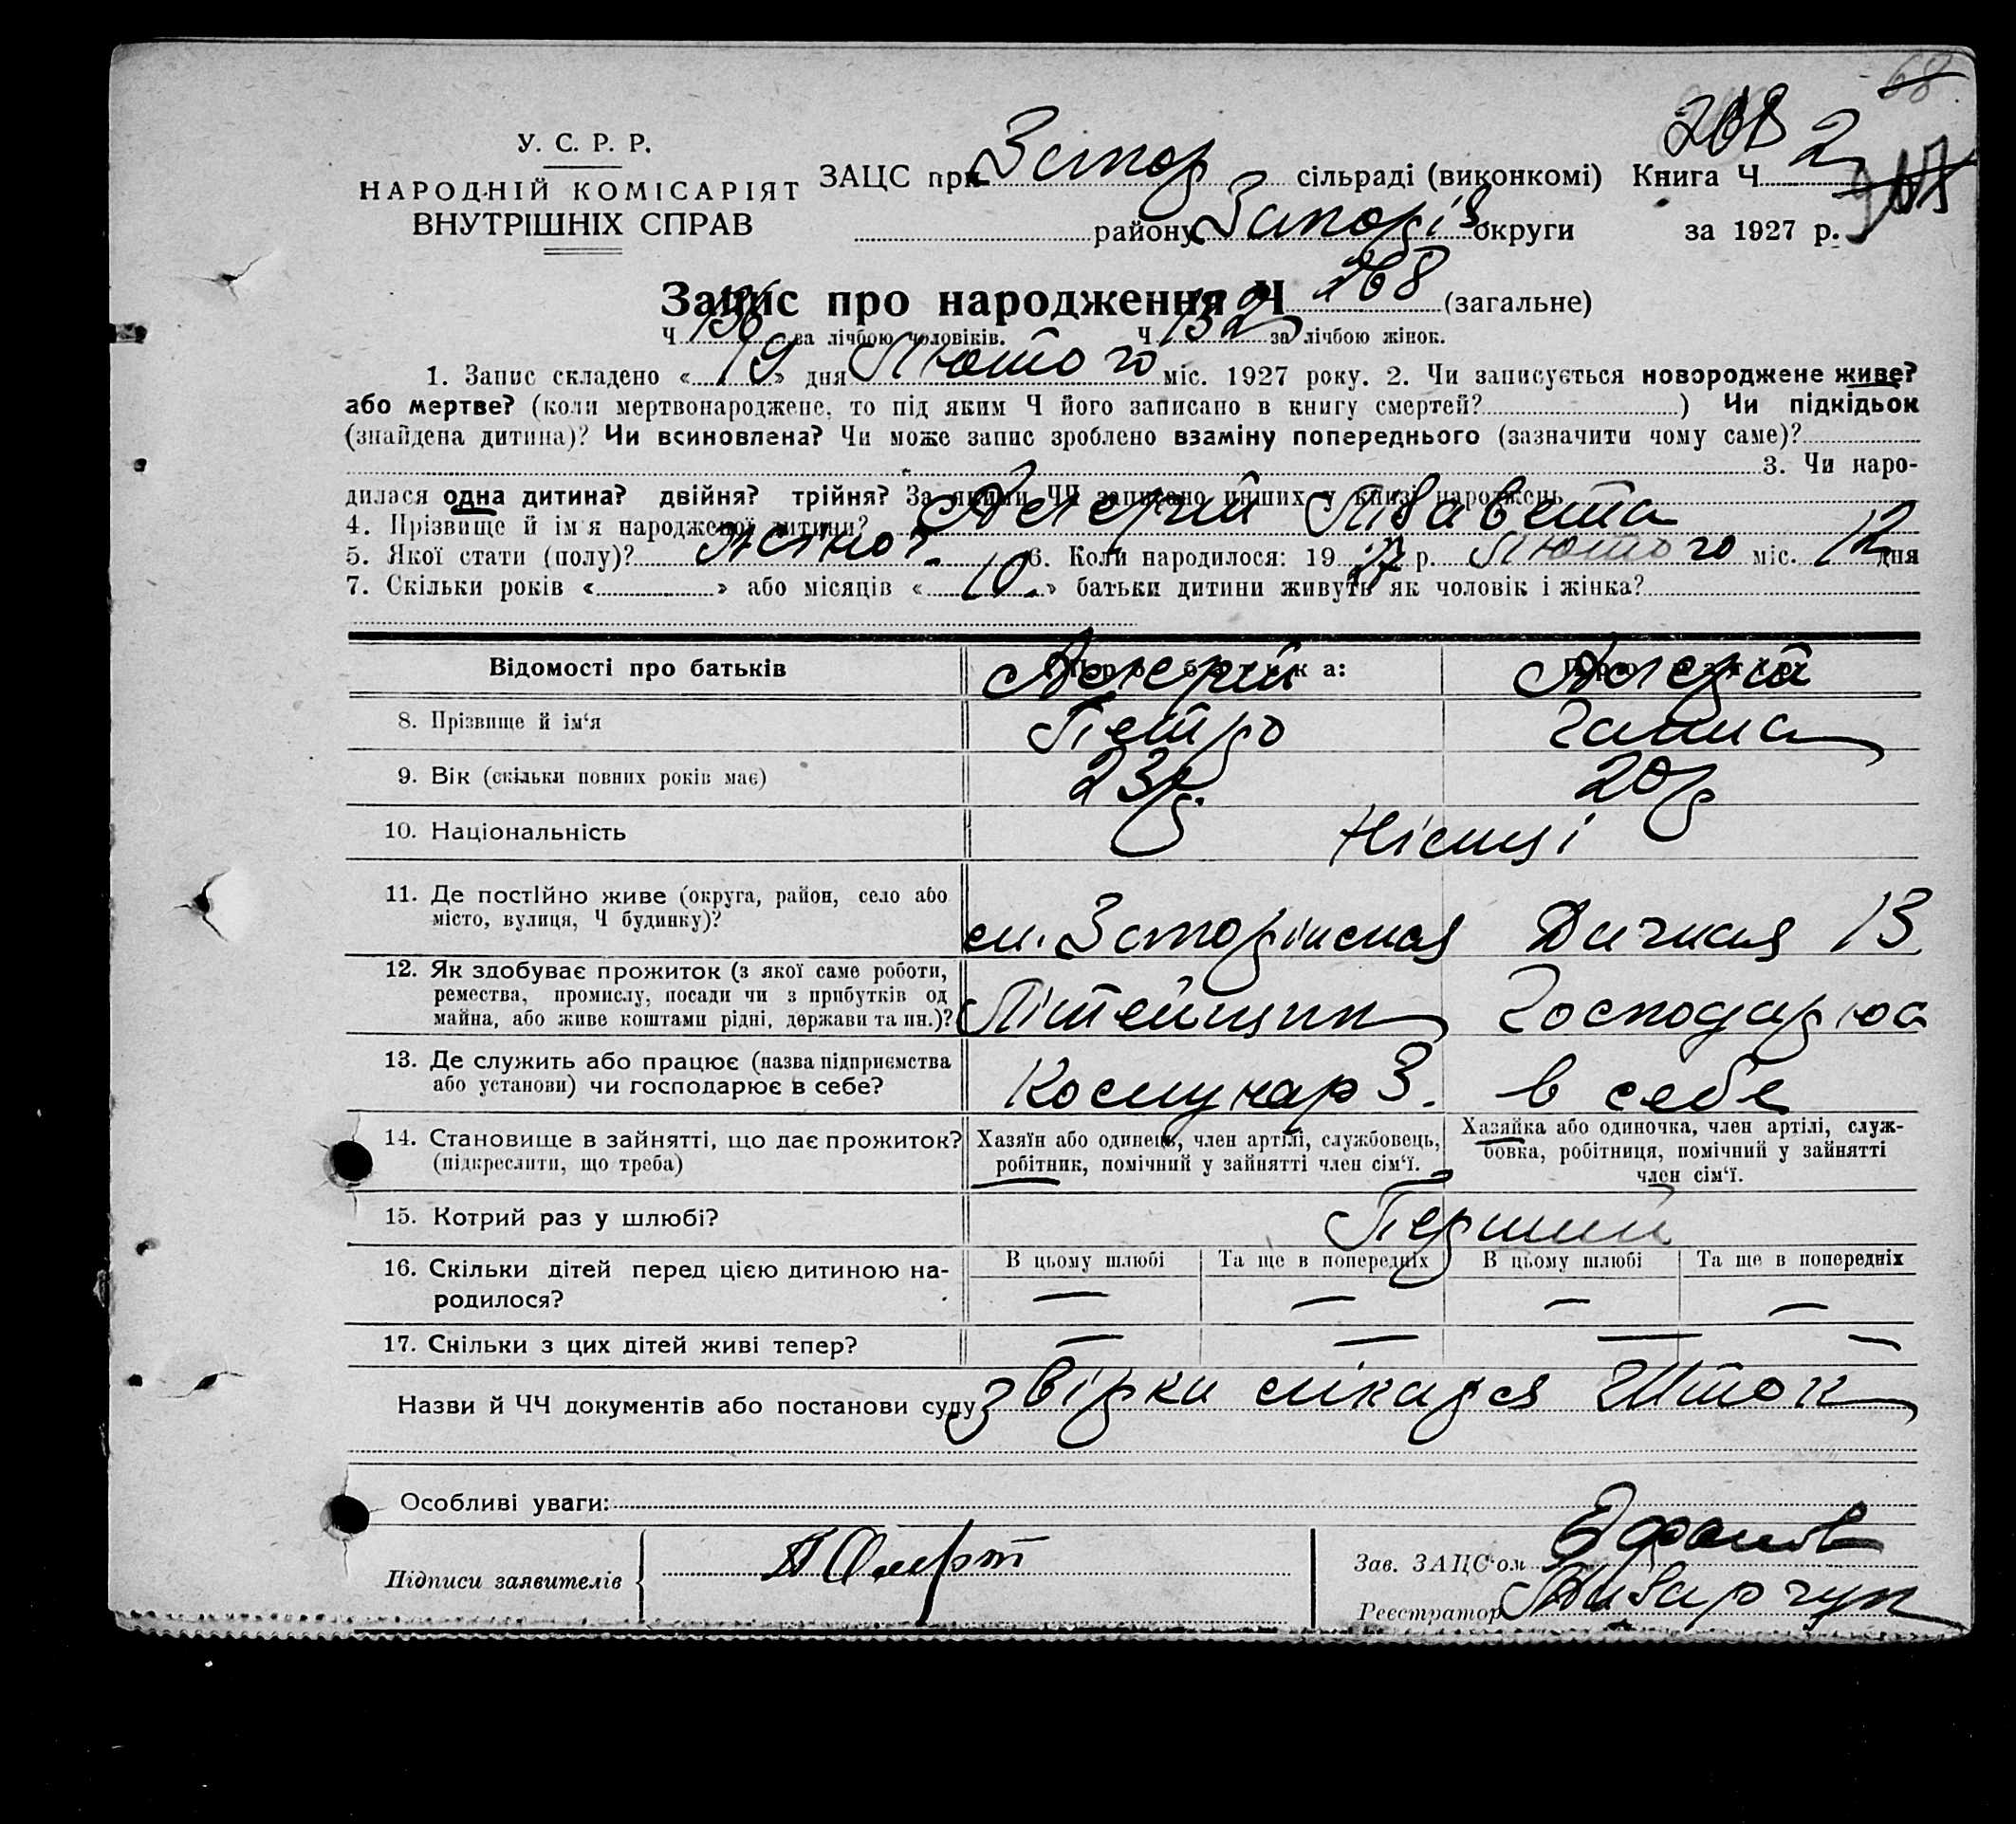 68
268 2
У. С. Р. Р.
НАРОДНІЙ КОМІСАРІЯТ
ВНУТРІШНІХ СПРАВ
ЗАЦС при Запор сільраді (виконкомі) Книга Ч
району Запоріз округи за 1927 р.
Запис про народження Ч 268 (загальне)
Ч 136 за лічбою чоловіків. Ч 132 за лічбою жінок.
1. Запис складено « 19 » дня Лютого міс. 1927 року. 2. Чи записується новороджене живе?
або мертве? (коли мертвонароджене, то під яким Ч його записано в книгу смертей? ) Чи підкідьок
(знайдена дитина)? Чи всиновлена? Чи може запис зроблено взаміну попереднього (зазначити чому саме)?
3. Чи наро-
дилася одна дитина? двійня? трійня? За якими ЧЧ записано инших у книзі народжень
4. Прізвище й ім'я народженої дитини? Лізавета
5. Якої статі (полу)? жіно 6. Коли народилося: 19 27 р. Лютого міс. 12 дня
7. Скільки років « » або місяців « 10 » батьки дитини живуть як чоловік і жінка?
Відомості про батьків
8. Прізвище й ім'я Петро Ганна
9. Вік (скільки повних років має) 23р. 20р
10. Національність Німці
11. Де постійно живе (округа, район, село або
місто, вулиця, Ч будинку)? 13
12. Як здобуває прожиток (з якої саме роботи,
ремества, промислу, посади чи з прибутків од
майна, або живе коштами рідні, держави та ин.)? Літейщик Господарює
13. Де служить або працює (назва підприємства
або установи) чи господарює в себе? Комунар З. в себе
14. Становище в зайнятті, що дає прожиток?
(підкреслити, що треба)
Хазяїн або одинець, член артілі, службовець,
робітник, помічний у зайнятті член сім'ї.
Хазяйка або одиночка, член артілі, служ-
бовка, робітниця, помічний у зайнятті
член сім'ї.
15. Котрий раз у шлюбі? Перший
16. Скільки дітей перед цією дитиною на-
родилося?
В цьому шлюбі Та ще в попередніх В цьому шлюбі Та ще в попередніх
— — — —
17. Скільки з цих дітей живі тепер? — — — —
Назви й ЧЧ документів або постанови суду звірки лікаря Шток
Особливі уваги:
Підписи заявителів
Зав. ЗАЦС'ом
Реєстратор